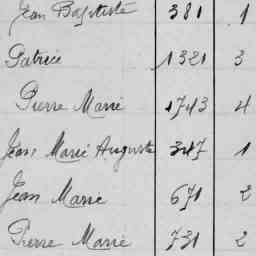 Jean Baptiste 381 1
Patrice 1321 3
Pierre Marie 1743 4
Jean Marie Auguste 347 1
Jean Marie 671 2
Pierre Marie 731 2